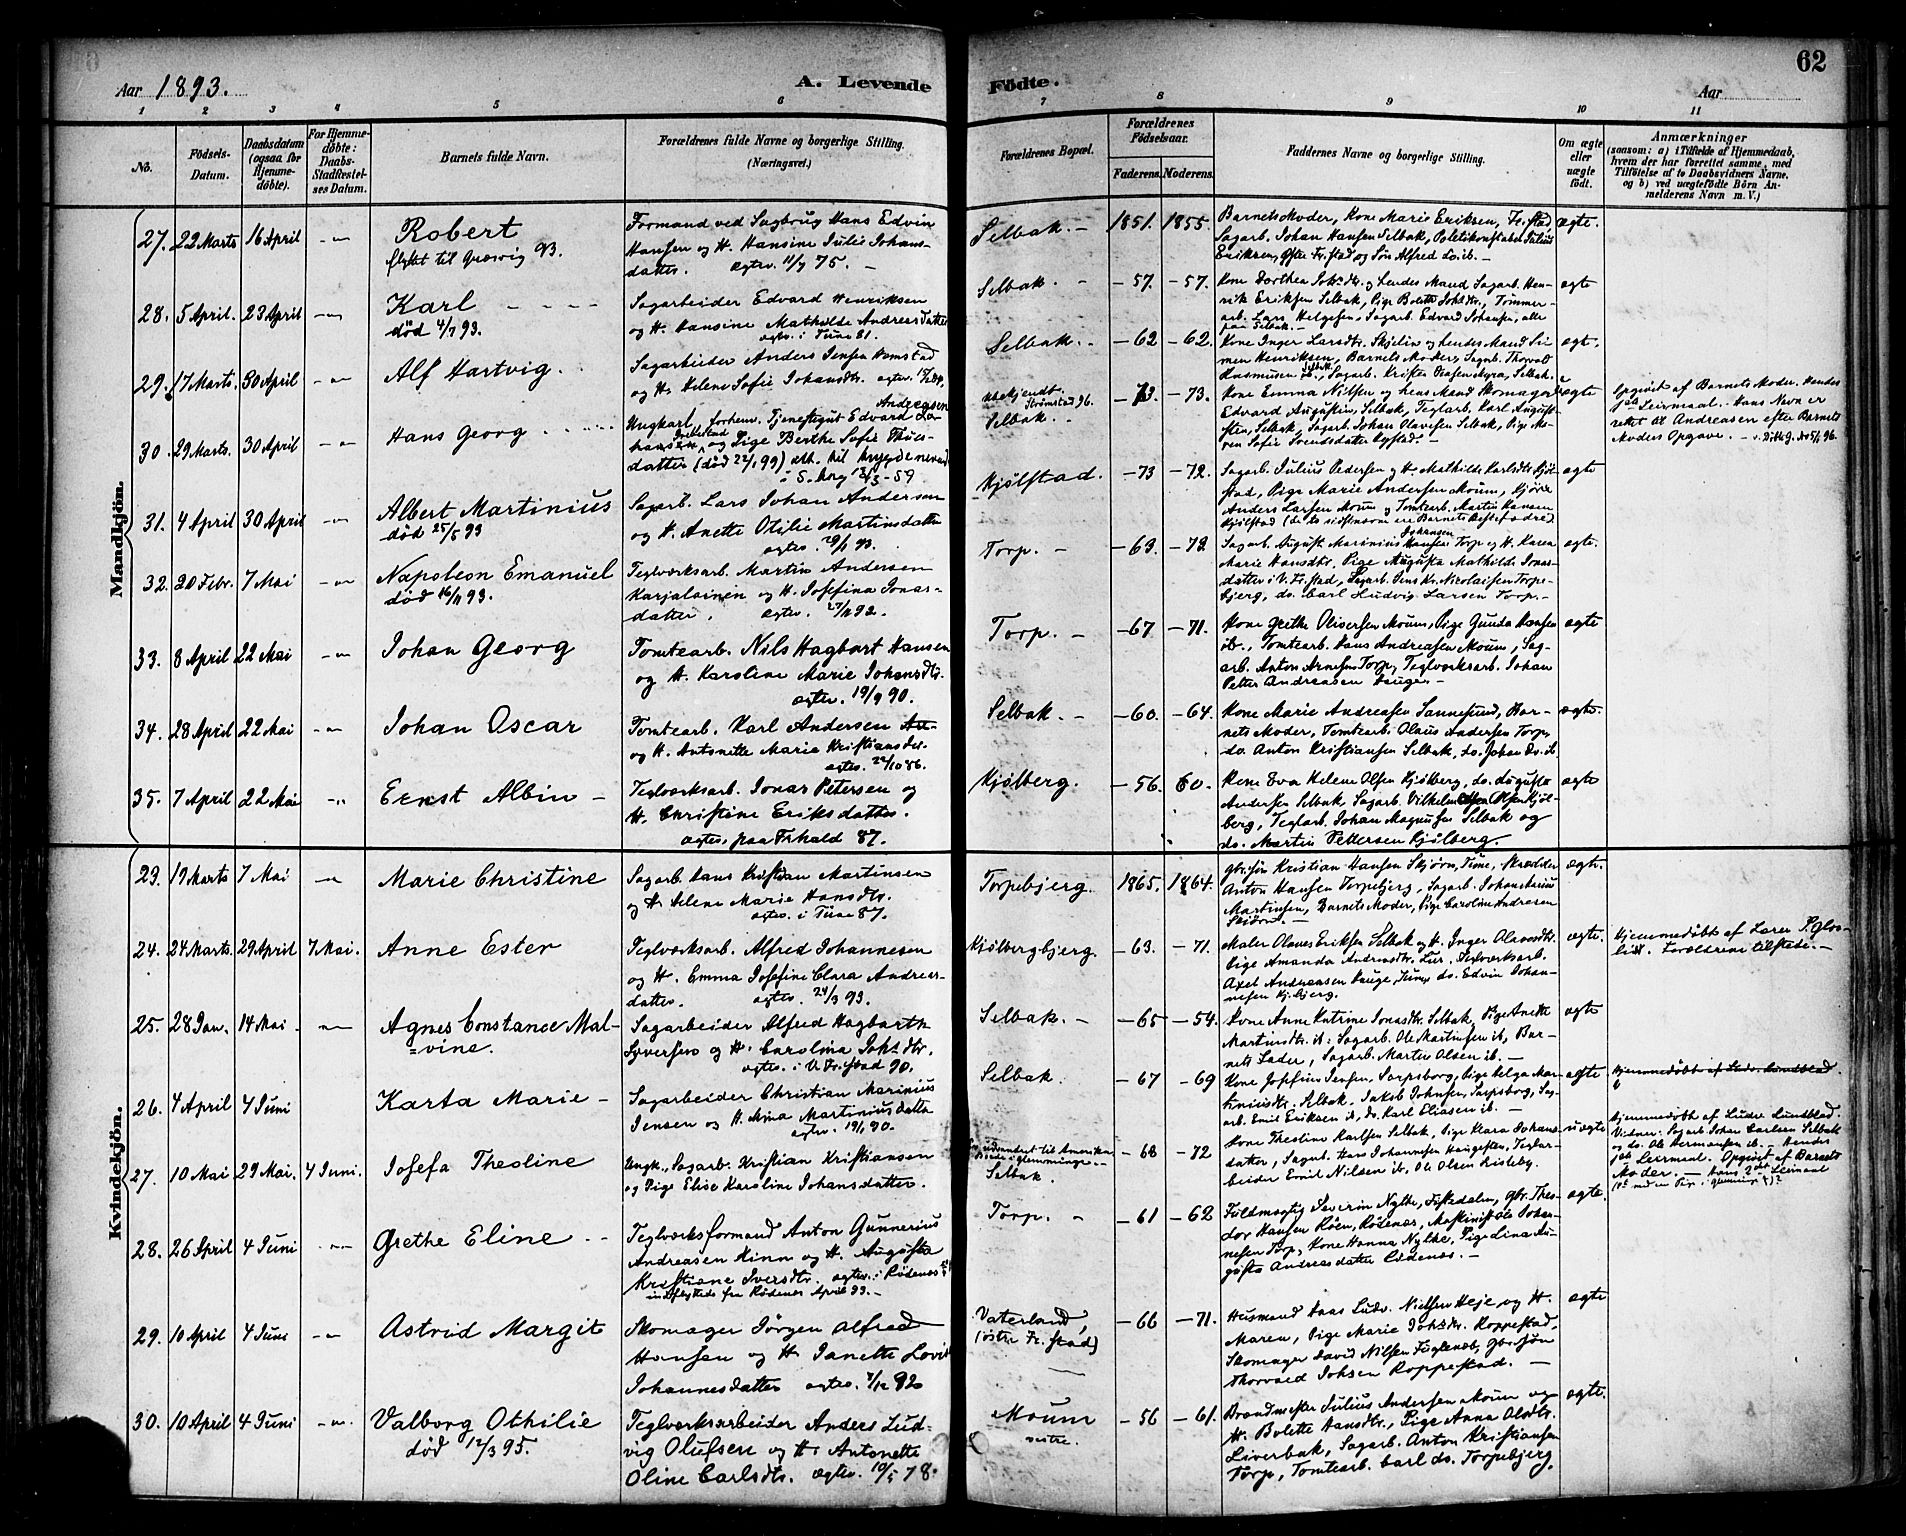 62
Aar 1893.
A. Levende
Födte.
Aar
1 2 3 4 5 6 7 8 9 10 11
No.
Födsels-
Datum.
Daabsdatum
(ogsaa for
Hjemme-
döbte).
For Hjemme-
döbte:
Daabs-
Stadfæstel-
ses Datum.
Barnets fulde Navn.
Forældrenes fulde Navne og borgerlige Stilling.
(Næringsvei.)
Forældrenes Bopæl.
Forældrenes
Födselsaar.
Faderens. Moderens.
Faddernes Navne og borgerlige Stilling.
Om ægte
eller
uægte
födt.
Anmærkninger
(saasom: a) i Tilfælde af Hjemmedaab,
hvem der har forrettet samme, med
Tilföielse af to Daabsvidners Navne,
og b) ved uægtefödte Börn An-
melderens Navn m. V.)
Mandkjön.
27. 22 Marts 16 April Robert
flyttet til Græsvig 93.
Formand ved Sagbrug Hans Edvin
Hansen og H. Hansine Julie Johans-
datter. ægtev. 11/7 75. –
Selbak. – 1851. 1855.
Barnets Moder, Kone Marie Eriksen, Fr.stad,
Sagarb. Johan Hansen Selbak, Politikonstabel Julius
Eriksen, Østre Fr.stad og Søn Alfred do. ib. –
ægte.
28. 5 April. 23 April Karl
død 4/7 93.
Sagarbeider Edvard Henriksen
og H. Hansine Mathilde Andreasdatter
ægtev. i Tune 81.
Selbak. – –57. –57.
Kone Dorthea Joh.dtr. og hendes Mand Sagarb. Hen-
rik Eriksen Selbak, Pige Bolette Joh.dtr., Tømmer-
arb. Lars Helgesen, Sagarb. Edvard Johansen, alle
paa Selbak. –
ægte
29. 17 Marts. 30 April Alf Hartvig.
Sagarbeider Anders Jensen
og H. Helene Sofie Johansdtr. ægtev.
Selbak. – –62 –62.
Kone Inger Larsdtr. Skjelin og hendes Mand Si-
men Henriksen, Barnets Moder, Sagarb. Thorvald
Rasmussen, Sagarb. Kristen Olsen Myra, Selbak.
ægt.
30. 29 Marts. 30 April Hans Georg
Ungkarl, forhenv. Tjenestegut Edvard
Andreasen
og Pige Berthe Sofie
datter (død 22/1 99)
Ubekjendt.
Strømstad 96.
Selbak. –73. –73.
Kone Emma Nilsen og hens Mand Skomager
Edvard Augustin, Selbak, Teglarb. Karl August-
sen, Selbak, Sagarb. Johan Olavesen Selbak, Pige Ma-
ren Sofie Svendsdatter
uægte
Opgivet af Barnets Moder. Hendes
1ste Leiermaal. – Hans Navn er
rettet til Andreasen efter Barnets
Moders Opgave. –
31. 4 April 30 April Albert Martinius
død 25/5 93
Sagarb. Lars Johan Andersen
og H. Anette Otilie Martinsdatter
ægtev. 29/1 93.
Kjølstad. –73 –72.
Sagarb. Julius Pedersen og H. Mathilde Karlsdtr. Kjøl-
stad, Pige Marie Andersen Moum,
Anders Larsen Moum og Tomtearb. Martin Hansen
Kjølstad (de to sidstnævnte ere Barnets Bestefædre)
ægte
32. 20 Febr. 7 Mai Napoleon Emanuel
død 16/11 93.
Teglværksarb. Martin Andersen
Karjalainen og H. Josefina Jonas-
datter. ægtev. 27/11 92.
Torp. – –63. –72
Sagarb. August Marinius Johansen Torp og H. Karen
Marie Hansdtr. Pige Augusta Mathilde Jonas-
datter i V. Fr.stad, Sagarb. Jens Kr. Nicolaisen Torpe-
bjerg, do. Carl Ludvig Larsen Torp. –
ægte.
33. 8 April 22 Mai Johan Georg
Tomtearb. Nils Hagbart Hansen
og H. Karoline Marie Johansdtr.
ægtev. 19/9 90.
Torp. – –67 –71.
Kone Grethe Oliversen Moum, Pige Gunda Hansen
ib., Tomtearb. Hans Andreasen Moum, Sag-
arb. Anton Arnesen Torp, Teglværksarb. Johan
Petter Andreasen Hauge. –
ægte
34. 28 April 22 Mai Johan Oscar
Tomtearb. Karl Andersen
og H. Antonette Marie Kristiansdtr.
ægtev. 22/10 86.
Selbak. – –60. –64.
Kone Marie Andreasen Sannesund, Bar-
nets Moder, Tomtearb. Olaus Andersen Torp,
do. Anton Kristiansen Selbak, do. Johan do. ib.
ægte.
35. 7 April 22 Mai Ernst Albin –
Teglværksarb. Jonas Petersen og
H. Christine Eriksdatter.
ægtev. paa Frhald 87.
Kjølberg. –56. 60.
Kone Eva Helene Olsen Kjølberg, do. Auguste
Andersen Selbak, Sagarb. Vilhelm Olsen Kjøl-
berg, Teglarb. Johan Magnusen Selbak og
do. Martin Pettersen Kjølberg.
ægte
Kvindekjön.
23. 19 Marts 7 Mai Marie Christine
Sagarb. Hans Kristian Martinsen
og H. Helene Marie Hansdtr.
ægtev. i Tune 87.
Torpebjerg. 1865. 1864.
Gbr.søn Kristian Hansen Skjørn, Tune, Skrædder
Anton Hansen Torpebjerg, Sagarb. Johan Marius
Martinsen, Barnets Moder, Pige Caroline Andresen
ægte.
24. 24 Marts. 29 April 7 Mai. Anne Ester
Teglværksarb. Alfred Johannesen
og H. Emma Josefine Clara Andreas-
datter. ægtev. 24/3 93.
Kjølbergbjerg. –63. –71.
Maler Olaves Eriksen Selbak og H. Inger Olavesdtr.
Pige Amanda Andreasdtr. Lur. Teglværksarb.
Axel Andreasen Hauge, Tune, do. Edvin Johan-
nesen Kj.bjerg.
ægte.
Hjemmedøbt af Lærer P. Glos-
lie. Forældrene tilstede. –
25. 28 Jan. 14 Mai Agnes Constance Mal-
=vine.
Sagarbeider Alfred Hagbarth
Syversen og H. Carolina Joh.dtr.
ægtev. i V. Fr.stad 90.
Selbak. – –65 –54.
Kone Anne Katrine Jonasdtr. Selbak, Pige Anette
Martinsdtr. ib. Sagarb. Ole Martinsen ib, Bar-
nets Fader, Sagarb. Martin Olsen ib. –
ægte
26. 4 April 4 Juni Karta Marie –
Sagarbeider Christian Marinius
Jensen og H. Mina Martiniusdatter
ægtev. 19/1 90.
Selbak. –67 –69
Kone Josefine Jensen, Sarpsborg, Pige Helga Mar-
tiniusdtr. Selbak. Jakob Johnsen, Sarpsborg, Sag-
arb. Emil Eriksen ib, do. Karl Eliasen ib. –
ægte
Hjemmedøbt af Ludv. Lundblad
27. 10 Mai 29 Mai. 4 Juni. Josefa Theoline
Ungk., Sagarb. Kristian Kristiansen
og Pige Elise Karoline Johansdatter.
udvandret til Amerika
Selbak. –68 –72
Kone Theoline Karlsen Selbak, Pige Klara Johans-
datter, Sagarb. Hans Johannesen Haugesten, Teglar-
beider Emil Nilsen ib, Ole Olsen Lisleby.
uægte
Hjemmedøbt af Ludv. Lundblad.
Vidner: Sagarb. Johan Carlsen Selbak
do. Ole Hermansen ib. – Hendes
1ste Leiermaal. Opgivet af Barnets
Moder. – Hans 2det Leiermaal
28. 26 April 4 Juni Grethe Eline
Teglværksformand Anton Gunnerius
Andreasen Hinn og H. Augusta
Kristiane Iversdtr. ægtev. i Rødenes
indflyttede fra Rødenes April 93. –
Torp. – –61 –62
Fuldmægtig Severin Nythe, Fiskedalen, Gbr. Theo-
dor Hansen Røen, Rødenes, Maskinist Ole Johan-
nesen Torp, Kone Hanna Nylke, Pige Lina Au-
gusta Andreasdatter Rødenes. –
ægte.
29. 10 April 4 Juni Astrid Margit
Skomager Jörgen Alfred
Hansen og H. Janette Lovise
Johannesdatter ægtev. 7/12 92
Vaterland,
(østre Fr.stad)
–66 –71.
Husmand Hans Ludv. Nielsen Heje og H.
Maren, Pige Marie Johsdtr. Roppestad,
Skomager David Nilsen Fuglevik, Gbr.søn
Thorvald Johsen Roppestad. –
ægte
30. 10 April 4 Juni Valborg Othilie
død 12/3 95.
Teglværksarbeider Anders Lud-
vig Olufsen og H. Antonette
Oline Carlsdtr. ægtev. 10/5 78.
Moum
vestre. –56 –61.
Brandmester Julius Andersen Moum og
H. Bolette Hansdtr., Pige Anna Olsdtr.
Liverbak, Sagarb. Anton Kristiansen
Torp, Tomtearb. Carl do. Torpebjerg.
ægte.